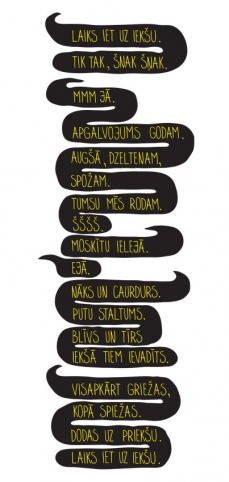 LAIKS IET UZ IEKŠU.
TIK TAK, ŠŅAK ŠŅAK.
MMM JĀ.
APGALVOJUMS GODAM.
AUGŠĀ, DZELTENAM,
SPOŽAM.
TUMSU MĒS RODAM.
ŠŠŠŠ.
MOSKĪTU IELEJĀ.
EJĀ.
NĀKS UN CAURDURS.
PUTU STALTUMS.
BLĪVS UN TĪRS
IEKŠĀ TIEM IEVADĪTS.
VISAPKĀRT GRIEŽAS,
KOPĀ SPIEŽAS.
DODAS UZ PRIEKŠU.
LAIKS IET UZ IEKŠU.